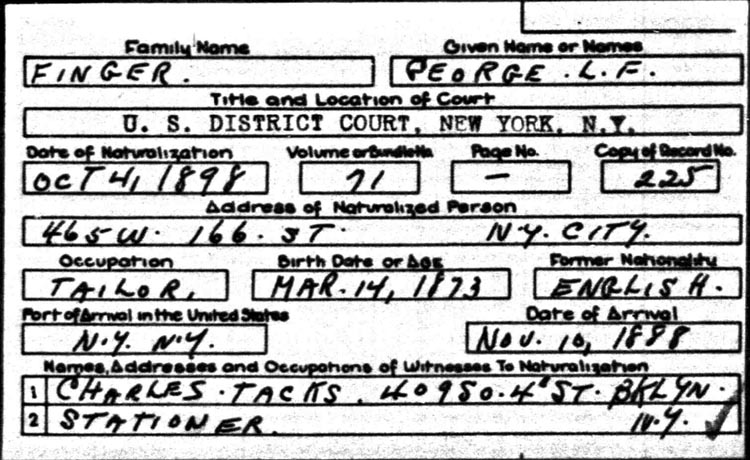 Family Name Given Name or Names
FINGER. GEORGE. L. F.
Title and Location of Court
U. S. DISTRICT COURT, NEW YORK, N.Y.
Date of Naturalization Volume or Bundle No. Page No. Copy of Record No.
OCT 4, 1898 71 — 225
Address of Naturalized Person
465 W. 166. ST. N.Y. CITY.
Occupation Birth Date or Age Former Nationality
TAILOR, MAR. 14, 1873 ENGLISH.
Port of Arrival in the United States Date of Arrival
N.Y. N.Y. NOV. 10, 1888
Names, Addresses and Occupations of Witnesses To Naturalization
1 CHARLES. TACKS. ST. BKLYN.
2 STATIONER. N.Y.